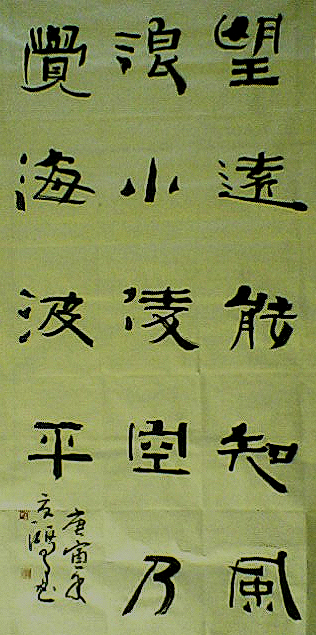 望遠能知風
浪小凌空乃
覺海波平
庚寅年